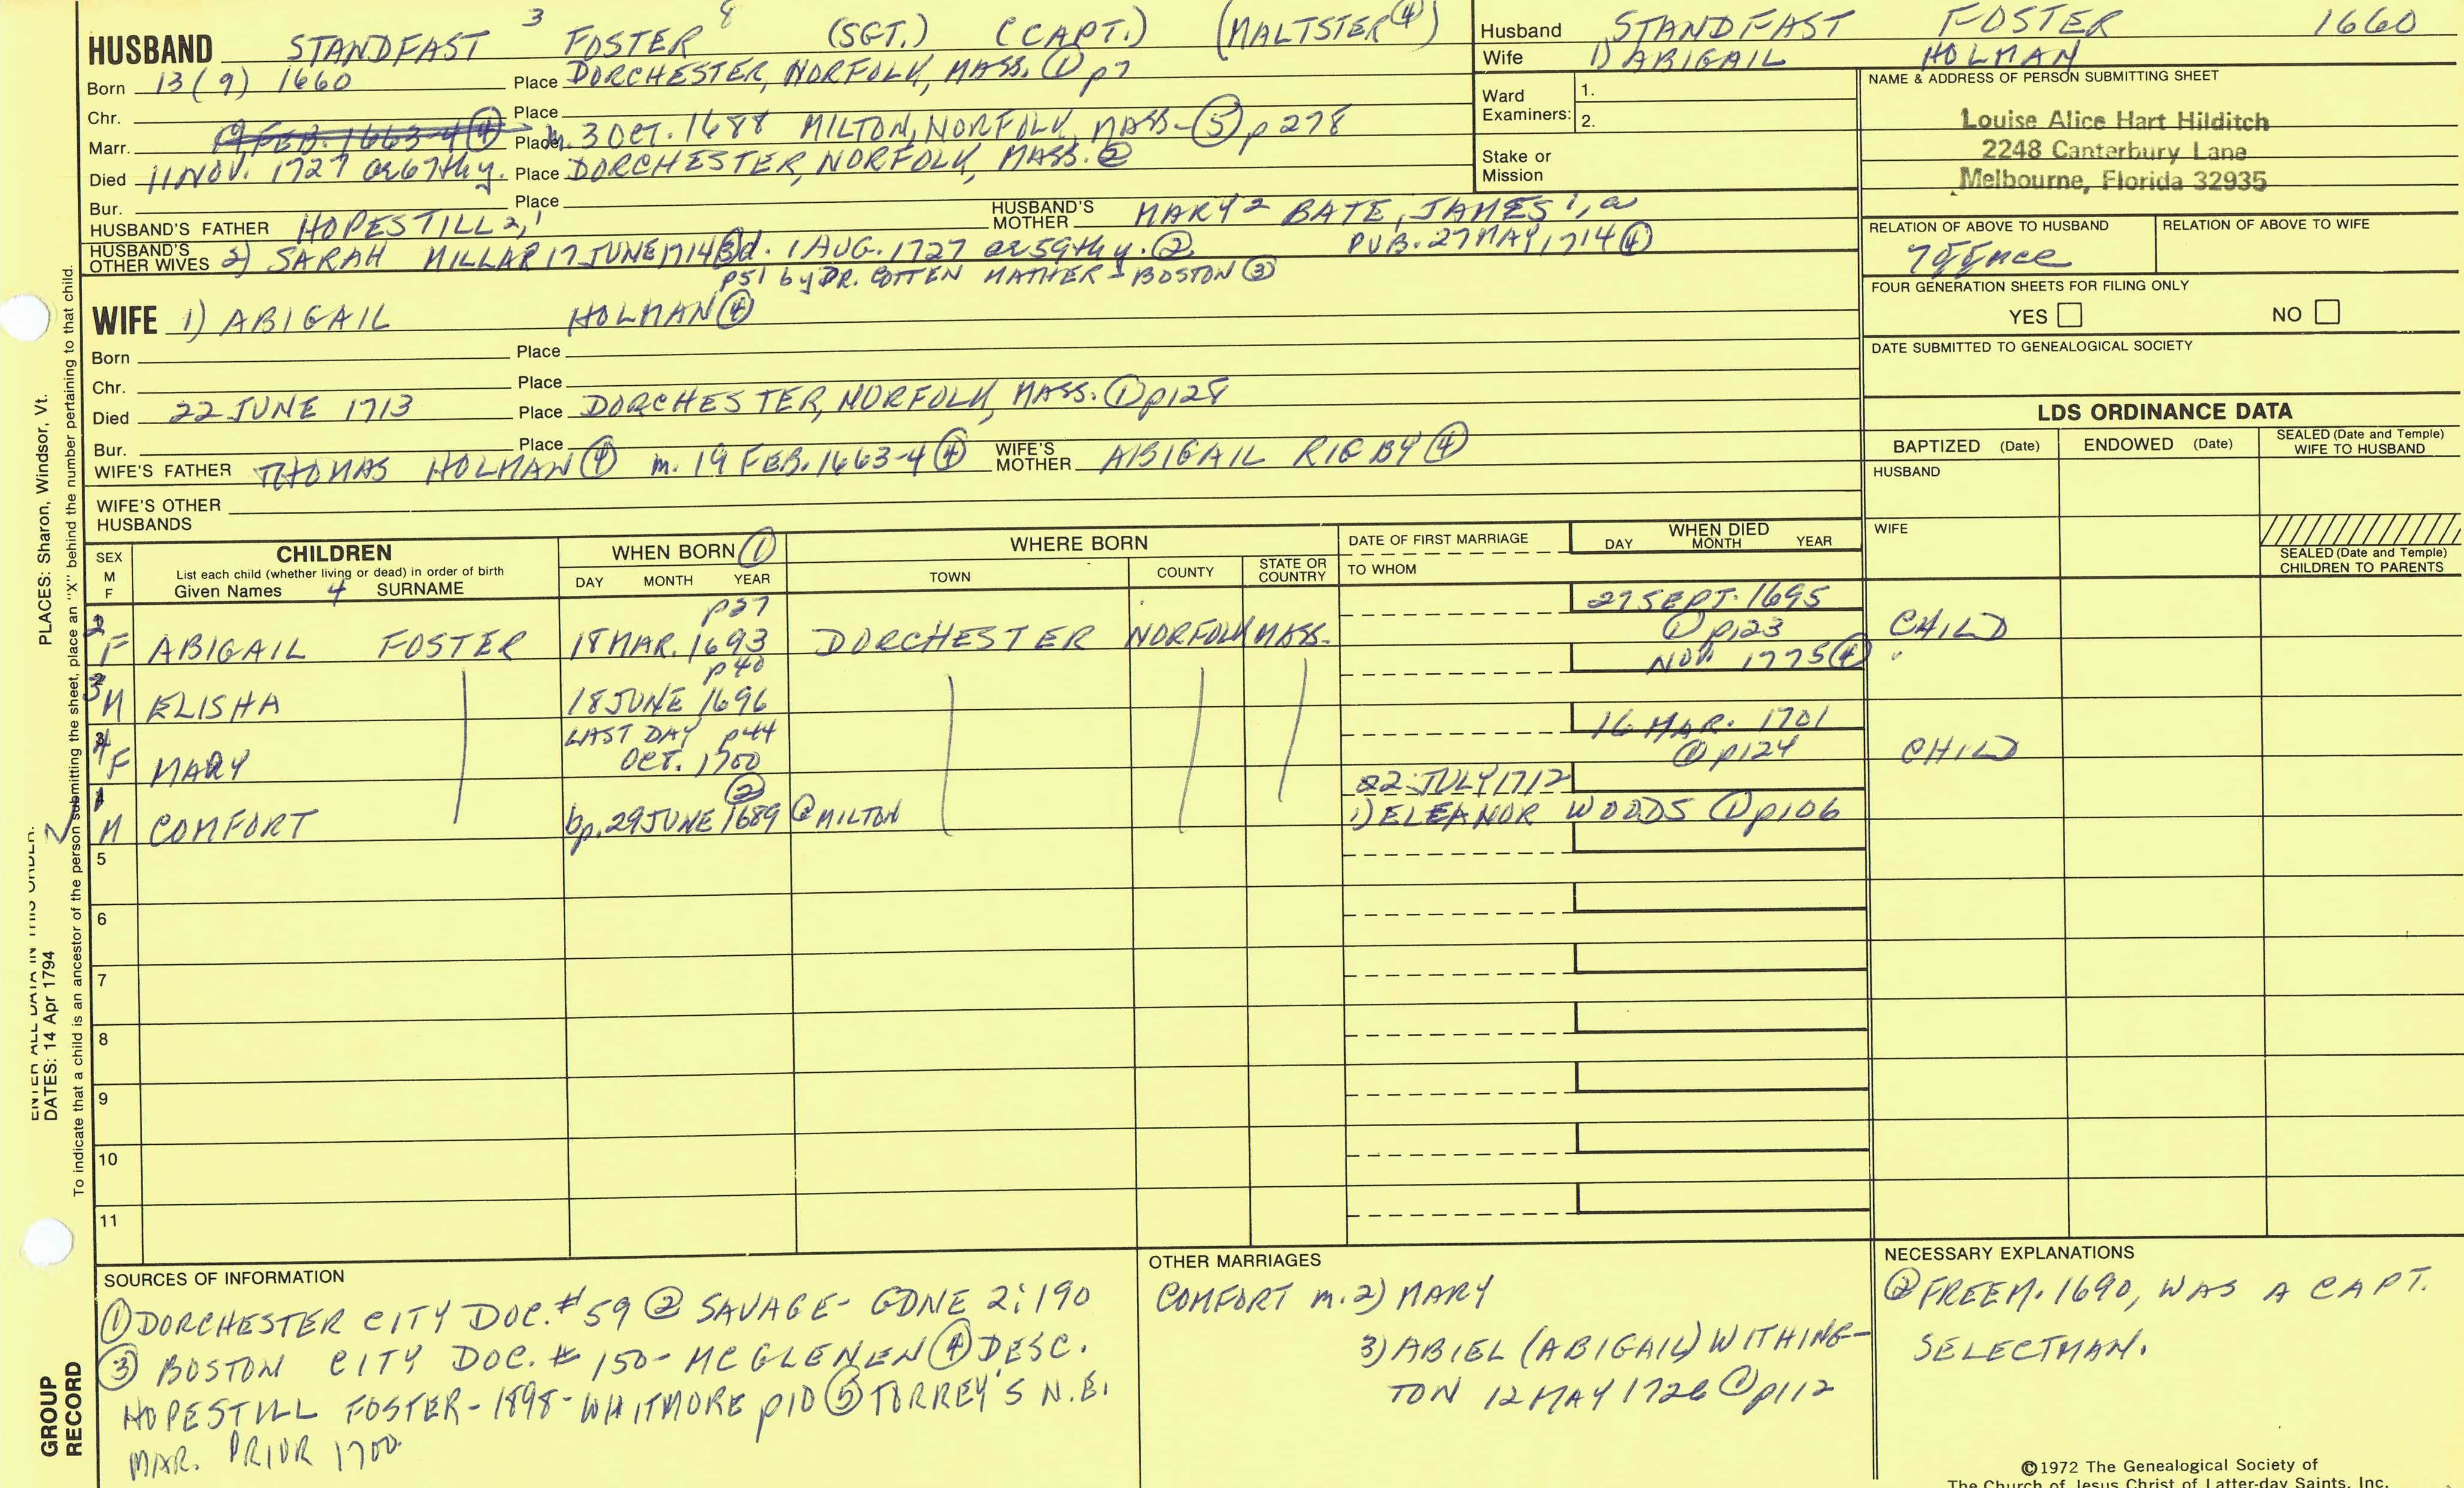 HUSBAND STANDFAST 3 FOSTER 8 (SGT.) (CAPT.) (MALTSTER ④)
Born 13 (9) 1660 Place DORCHESTER, NORFOLK, MASS. ① p7
Chr. Place
Marr. 19 FEB. 1663-4 ④ Place m. 3 OCT. 1688 MILTON, NORFOLK, MASS- ⑤ p 278
Died 11 NOV. 1727 ae 67th y. Place DORCHESTER, NORFOLK, MASS. ②
Bur. Place
HUSBAND'S FATHER HOPESTILL 2, 1 HUSBAND'S MOTHER MARY 2 BATE, JAMES 1, a
HUSBAND'S OTHER WIVES 2) SARAH MILLAR 17 JUNE 1714 ③ d. 1 AUG. 1727 ae 59th y. ② PUB. 27 MAY 1714 ④
p51 by DR. COTTEN MATHER - BOSTON ③
WIFE 1) ABIGAIL HOLMAN ④
Born Place
Chr. Place
Died 22 JUNE 1713 Place DORCHESTER, NORFOLK, MASS. ① p128
Bur. Place
WIFE'S FATHER THOMAS HOLMAN ④ m. 19 FEB. 1663-4 ④ WIFE'S MOTHER ABIGAIL RIGBY ④
WIFE'S OTHER HUSBANDS
Husband STANDFAST FOSTER 1660
Wife 1) ABIGAIL HOLMAN
Ward Examiners: 1.
2.
Stake or Mission
NAME & ADDRESS OF PERSON SUBMITTING SHEET
Louise Alice Hart Hilditch
2248 Canterbury Lane
Melbourne, Florida 32935
RELATION OF ABOVE TO HUSBAND RELATION OF ABOVE TO WIFE
FOUR GENERATION SHEETS FOR FILING ONLY
YES NO
DATE SUBMITTED TO GENEALOGICAL SOCIETY
LDS ORDINANCE DATA
BAPTIZED (Date) ENDOWED (Date) SEALED (Date and Temple) WIFE TO HUSBAND
HUSBAND
WIFE
SEALED (Date and Temple) CHILDREN TO PARENTS
SEX M F CHILDREN WHEN BORN ① WHERE BORN DATE OF FIRST MARRIAGE WHEN DIED
List each child (whether living or dead) in order of birth DAY MONTH YEAR TOWN COUNTY STATE OR COUNTRY TO WHOM DAY MONTH YEAR
Given Names 4 SURNAME
p37 27 SEPT. 1695
2 F ABIGAIL FOSTER 18 MAR. 1693 DORCHESTER NORFOLK MASS. ① p123 CHILD
p40 NOV. 1775 ④
3 M ELISHA 18 JUNE 1696
LAST DAY p44 16 MAR. 1701
4 F MARY OCT. 1700 ① p124 CHILD
② 22 JULY 1712
1 M COMFORT bp. 29 JUNE 1689 @ MILTON 1) ELEANOR WOODS ① p106
5
6
7
8
9
10
11
SOURCES OF INFORMATION
① DORCHESTER CITY DOC. # 59 ② SAVAGE - GDNE 2:190
③ BOSTON CITY DOC. # 150 - MCGLENEN ④ DESC.
HOPESTILL FOSTER - 1898 - WHITMORE p10 ⑤ TORREY'S N.E.
MAR. PRIOR 1700.
OTHER MARRIAGES
COMFORT m. 2) MARY
3) ABIEL (ABIGAIL) WITHING-
TON 12 MAY 1726 ① p112
NECESSARY EXPLANATIONS
② FREEM. 1690, WAS A CAPT.
SELECTMAN.
©1972 The Genealogical Society of
The Church of Jesus Christ of Latter-day Saints, Inc.
PLACES: Sharon, Windsor, Vt.
To indicate that a child is an ancestor of the person submitting the sheet, place an "X" behind the number pertaining to that child.
ENTER ALL DATA IN THIS ORDER:
DATES: 14 Apr 1794
GROUP RECORD